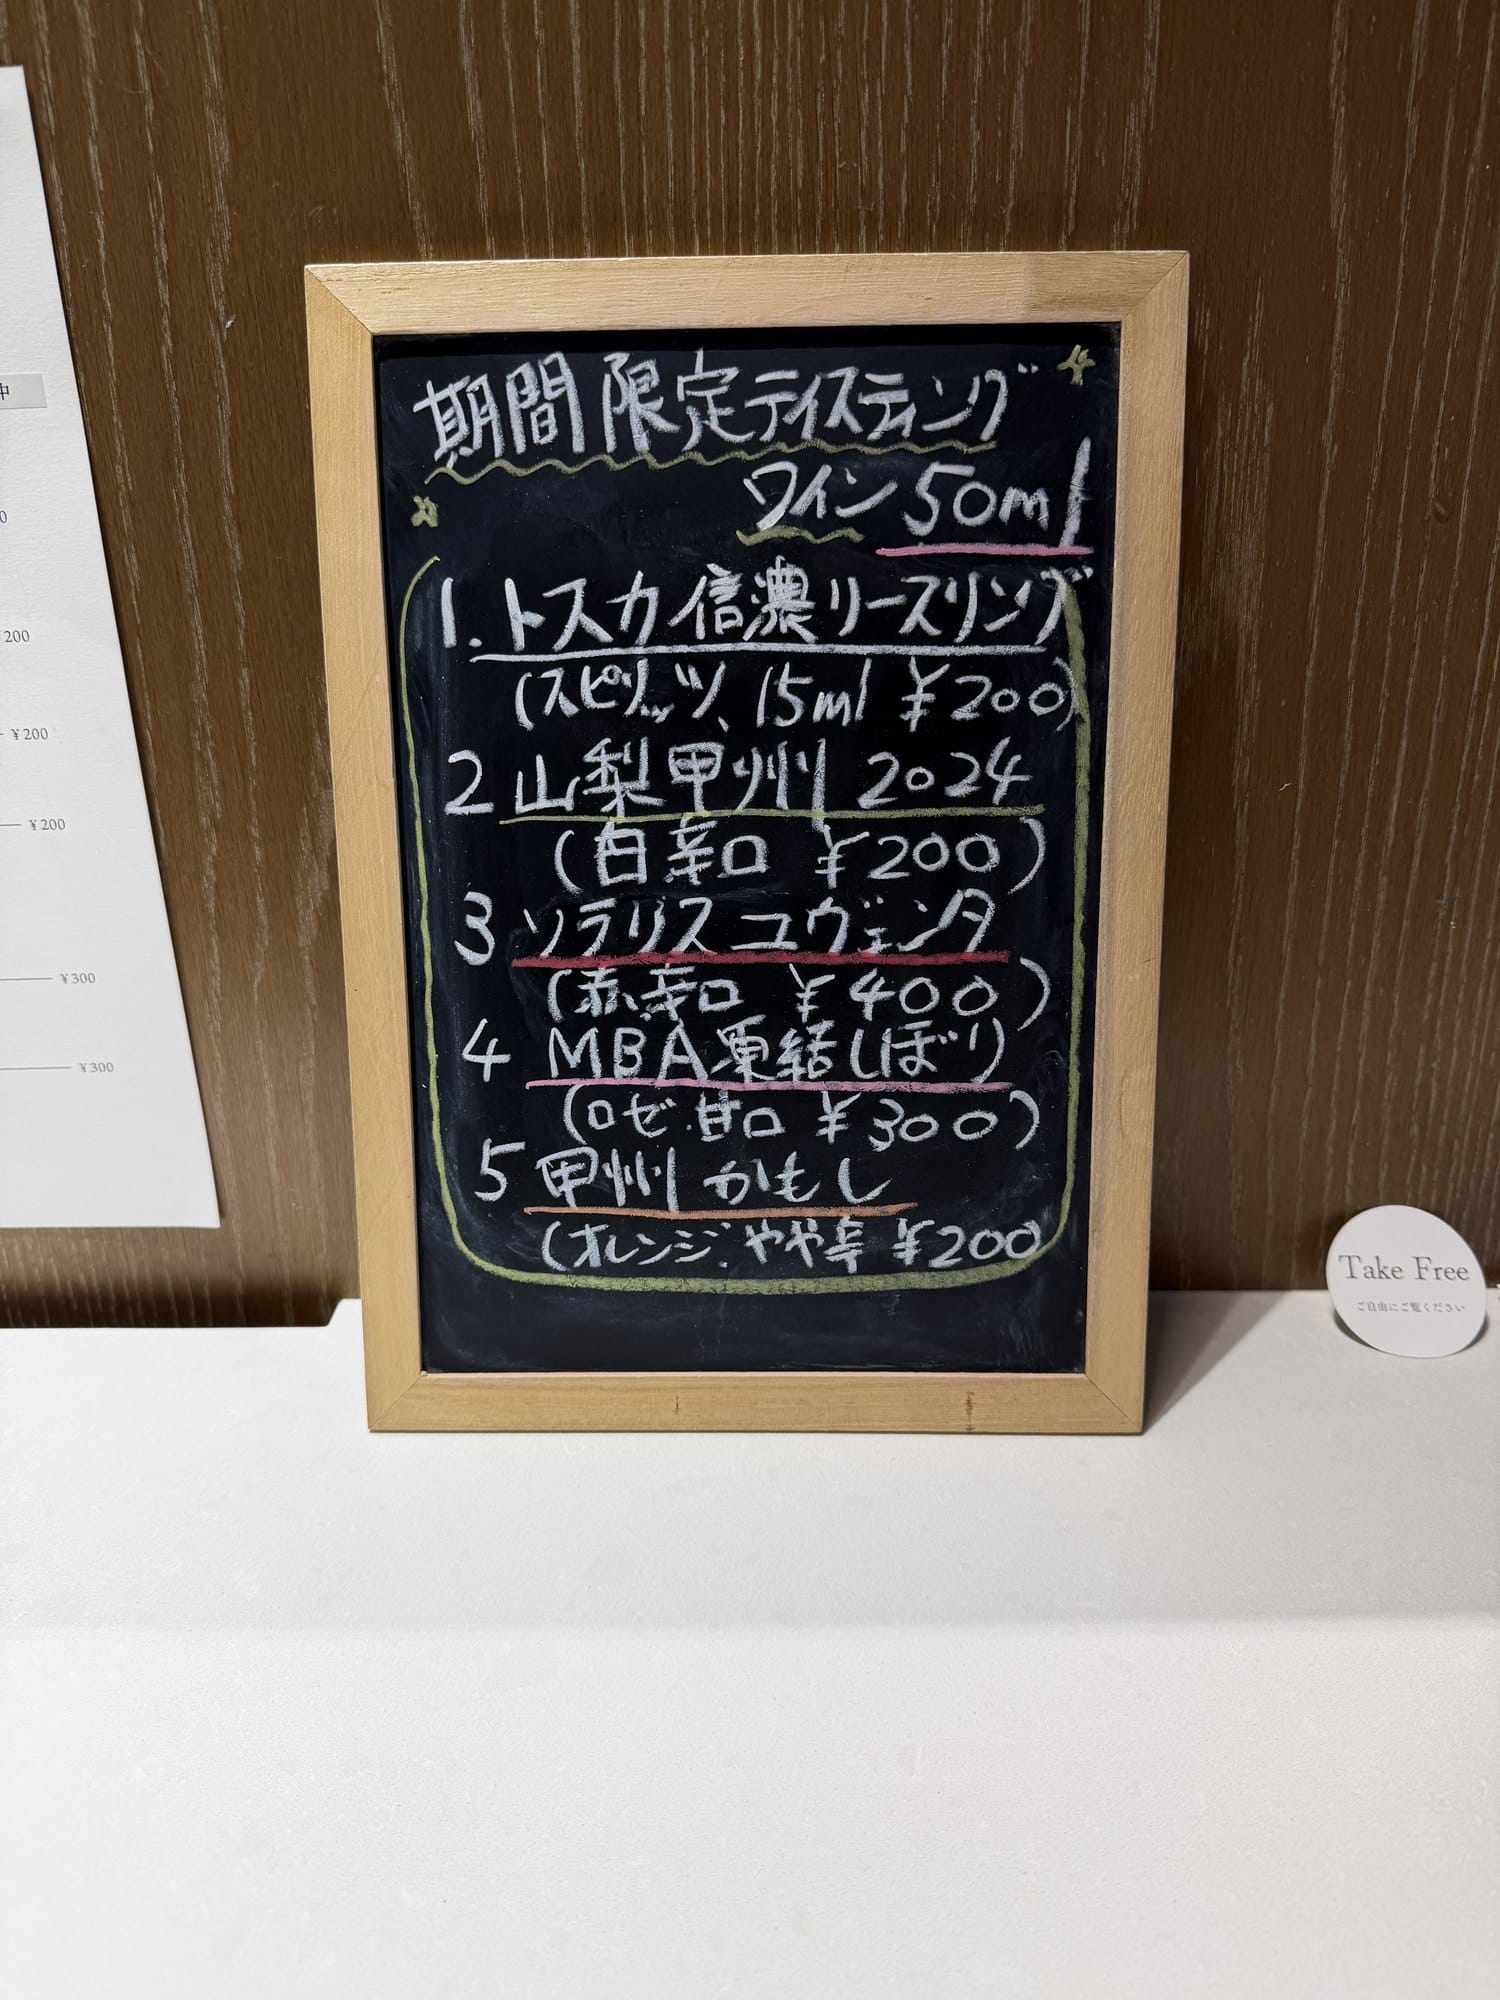 期間限定テイスティング
ワイン 50ml
1. トスカ信濃リースリング
(スピリッツ、15ml ¥200)
2 山梨甲州 2024
(白辛口 ¥200)
3 ソラリス コヴェンタ
(赤辛口 ¥400)
4 MBA凍結しぼり
(ロゼ.甘口 ¥300)
5 甲州 かもし
(オレンジ.やや辛 ¥200)
中
0
¥200
¥200
¥200
¥300
¥300
Take Free
ご自由にご覧ください